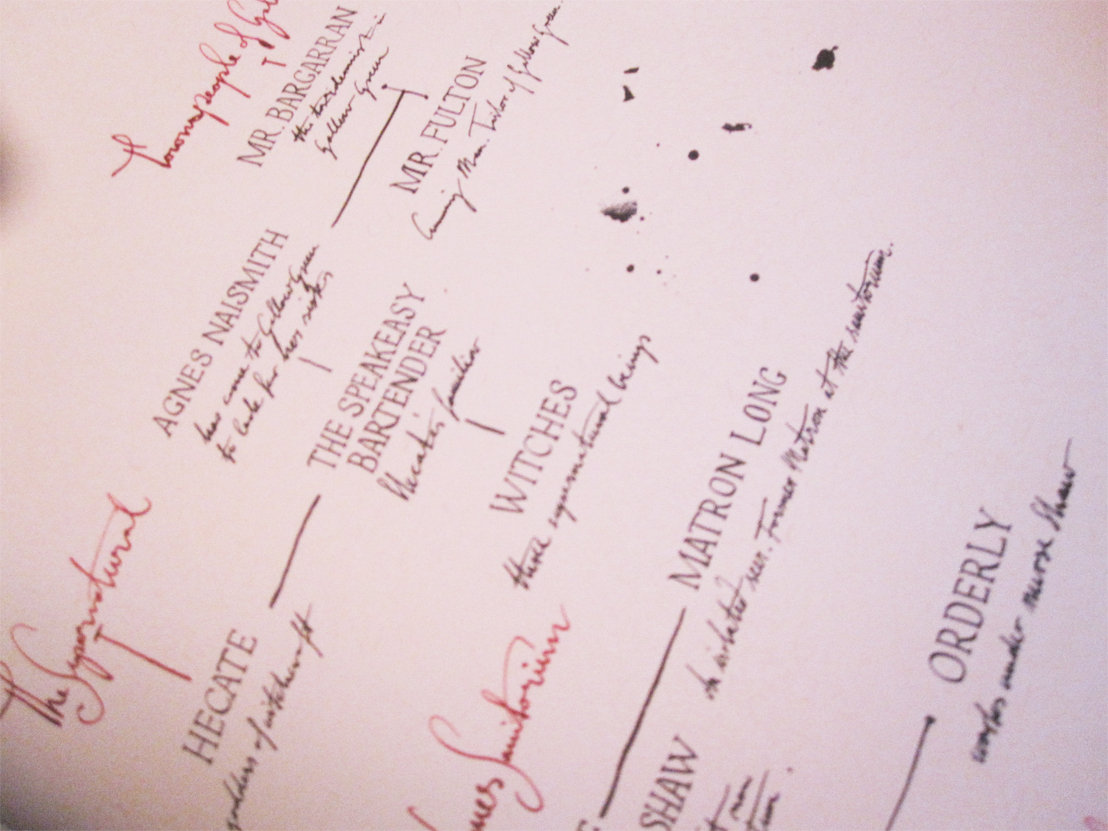 Townspeople of
MR. BARGARRAN
the taxidermist in
Gallow Green
MR. FULTON
Cunning Man. Tailor of Gallow Green.
AGNES NAISMITH
has come to Gallow Green
to look for her sister
The Supernatural
THE SPEAKEASY
BARTENDER
Hecate's familiar
WITCHES
three supernatural beings
HECATE
goddess of witchcraft
Sanitorium
MATRON LONG
An isolated seer. Former Matron at the sanitorium.
SHAW
ORDERLY
works under nurse Shaw